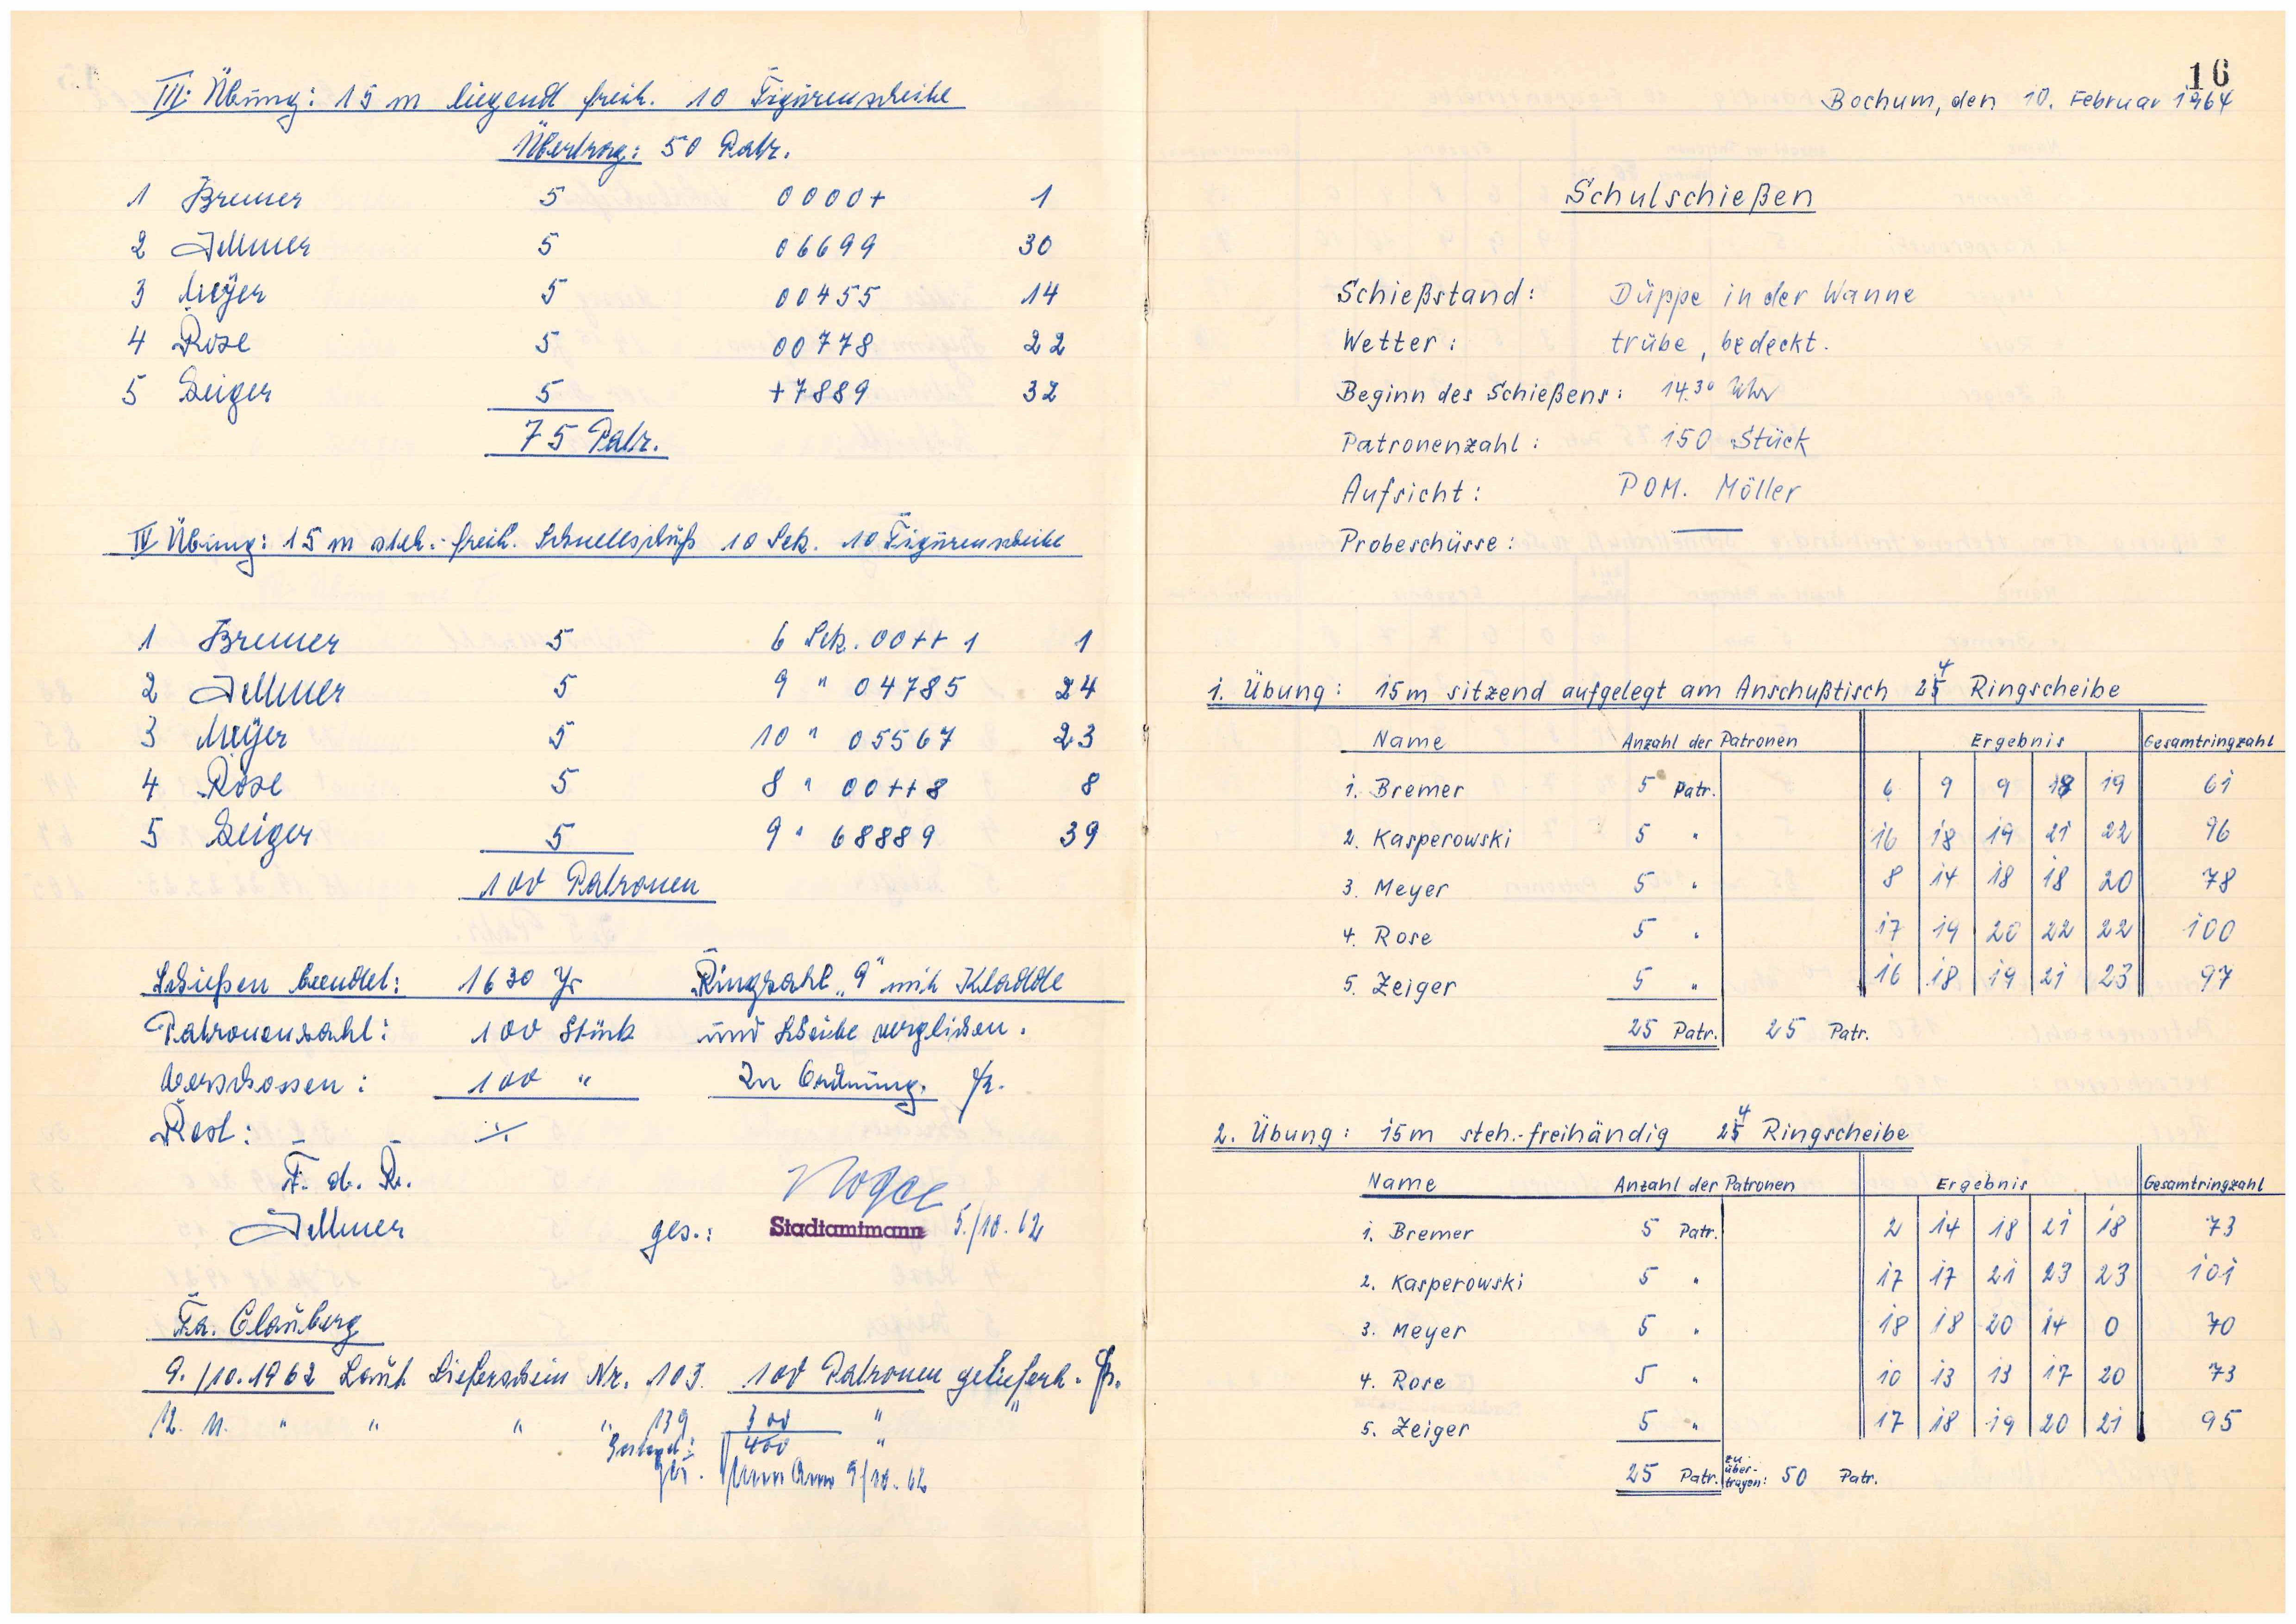 III. Übung: 15 m liegend freih. 10 Figurenscheibe
Übertrag: 50 Patr.
1 Bremer 5 0000+ 1
2 Jellmer 5 06699 30
3 Meÿer 5 00455 14
4 Rose 5 00778 22
5 Zeiger 5 +7889 32
75 Patr.
IV Übung: 15 m steh.-freih. Schnellschuß 10 Sek. 10 Figurenscheibe
1 Bremer 5 6 Sek. 00++1 1
2 Jellmer 5 9 " 04785 24
3 Meÿer 5 10 " 05567 23
4 Rose 5 8 " 00++8 8
5 Zeiger 5 9 " 68889 39
100 Patronen
Schießen beendet: 1630 Ringzahl „9" mit Kladde
Patronenzahl: 100 Stück und Scheibe verglichen.
Verschossen: 100 " In Ordnung.
Rest: ./.
F. d. R.
Jellmer ges.: Stadtamtmann 5./10.62
Fa. Clauberg
9./10.1962 Laut Lieferschein Nr. 103. 100 Patronen geliefert.
12. 11. " " " " 139 300 "
400 "
9/10.62
16
Bochum, den 10. Februar 1964
Schulschießen
Schießstand: Düppe in der Wanne
Wetter: trübe, bedeckt.
Beginn des Schießens: 14.30 Uhr
Patronenzahl: 150 Stück
Aufsicht: POM. Möller
Probeschüsse: —
1. Übung: 15m sitzend aufgelegt am Anschußtisch 24 Ringscheibe
Name Anzahl der Patronen Ergebnis Gesamtringzahl
1. Bremer 5 Patr. 6 9 9 18 19 61
2. Kasperowski 5 " 16 18 19 21 22 96
3. Meyer 5 " 8 14 18 18 20 78
4. Rose 5 " 17 19 20 22 22 100
5. Zeiger 5 " 16 18 19 21 23 97
25 Patr. 25 Patr.
2. Übung: 15m steh.-freihändig 24 Ringscheibe
Name Anzahl der Patronen Ergebnis Gesamtringzahl
1. Bremer 5 Patr. 2 14 18 21 18 73
2. Kasperowski 5 " 17 17 21 23 23 101
3. Meyer 5 " 18 18 20 14 0 70
4. Rose 5 " 10 13 13 17 20 73
5. Zeiger 5 " 17 18 19 20 21 95
25 Patr. zu übertragen: 50 Patr.